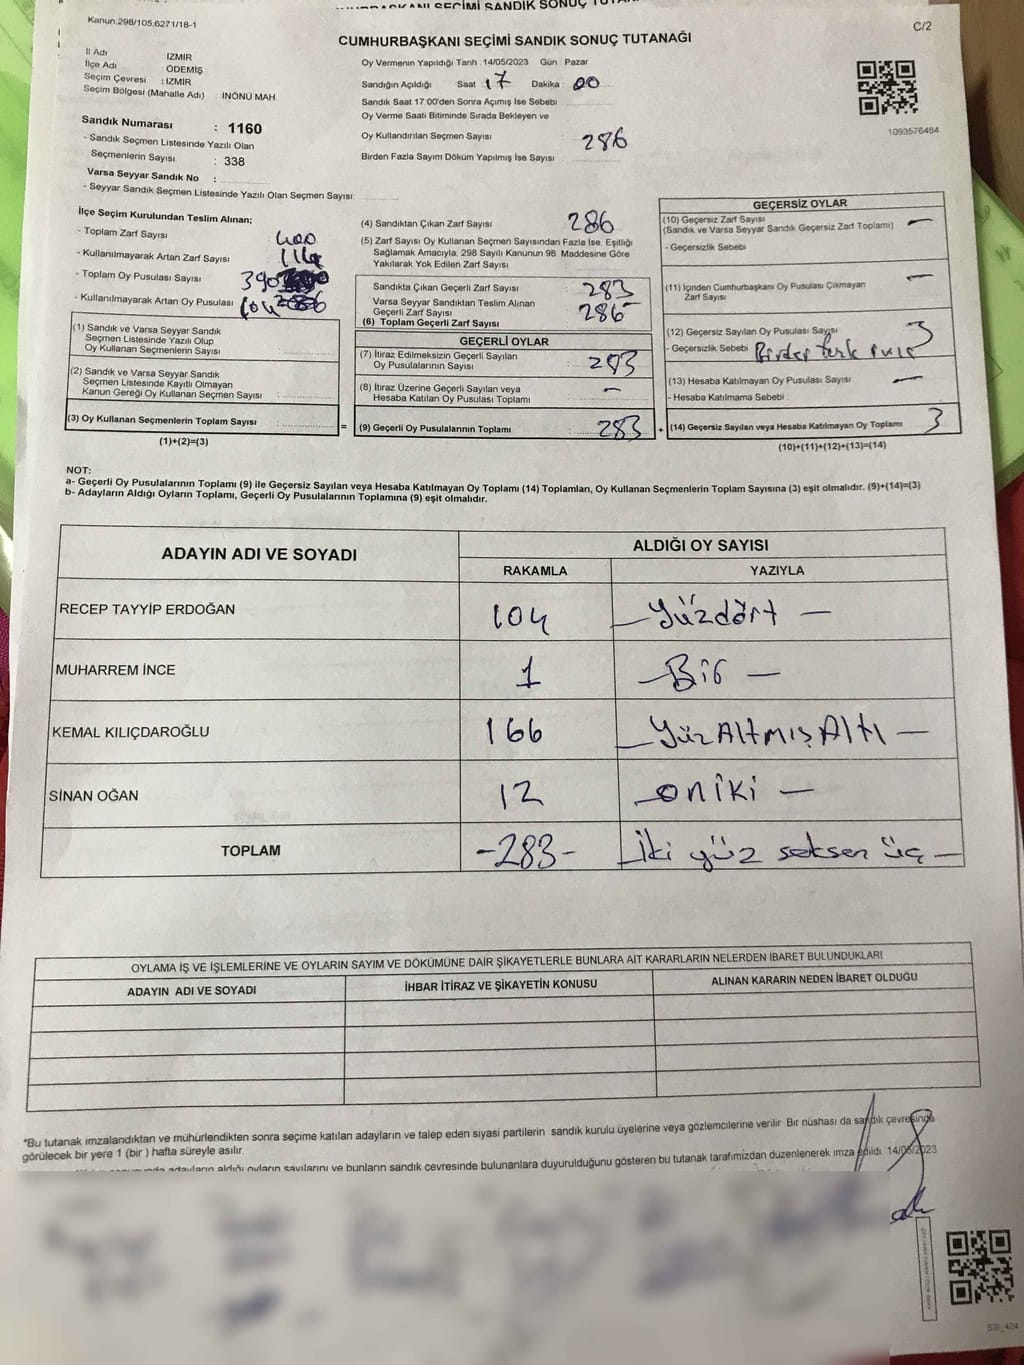 Kanun:298/105,6271/18-1
C/2
CUMHURBAŞKANI SEÇİMİ SANDIK SONUÇ TUTANAĞI
İl Adı İZMİR
İlçe Adı ÖDEMİŞ
Seçim Çevresi : İZMİR
Seçim Bölgesi (Mahalle Adı) : İNÖNÜ MAH.
Oy Vermenin Yapıldığı Tarih :14/05/2023 Gün : Pazar
Sandığın Açıldığı Saat : 17 Dakika : 00
Sandık Saat 17:00'den Sonra Açılmış İse Sebebi
Oy Verme Saati Bitiminde Sırada Bekleyen ve
Oy Kullandırılan Seçmen Sayısı : 286
Birden Fazla Sayım Döküm Yapılmış İse Sayısı
1093576484
Sandık Numarası : 1160
- Sandık Seçmen Listesinde Yazılı Olan
Seçmenlerin Sayısı : 338
Varsa Seyyar Sandık No :
- Seyyar Sandık Seçmen Listesinde Yazılı Olan Seçmen Sayısı:
İlçe Seçim Kurulundan Teslim Alınan;
- Toplam Zarf Sayısı : 400
- Kullanılmayarak Artan Zarf Sayısı : 114
- Toplam Oy Pusulası Sayısı 390
- Kullanılmayarak Artan Oy Pusulası 104
(1) Sandık ve Varsa Seyyar Sandık
Seçmen Listesinde Yazılı Olup
Oy Kullanan Seçmenlerin Sayısı :
(2) Sandık ve Varsa Seyyar Sandık
Seçmen Listesinde Kayıtlı Olmayan
Kanun Gereği Oy Kullanan Seçmen Sayısı :
(3) Oy Kullanan Seçmenlerin Toplam Sayısı : =
(1)+(2)=(3)
(4) Sandıktan Çıkan Zarf Sayısı 286
(5) Zarf Sayısı Oy Kullanan Seçmen Sayısından Fazla İse, Eşitliği
Sağlamak Amacıyla, 298 Sayılı Kanunun 98. Maddesine Göre
Yakılarak Yok Edilen Zarf Sayısı
Sandıkta Çıkan Geçerli Zarf Sayısı : 283
Varsa Seyyar Sandıktan Teslim Alınan
Geçerli Zarf Sayısı : 286
(6) Toplam Geçerli Zarf Sayısı
GEÇERLİ OYLAR
(7) İtiraz Edilmeksizin Geçerli Sayılan
Oy Pusulalarının Sayısı : 283
(8) İtiraz Üzerine Geçerli Sayılan veya
Hesaba Katılan Oy Pusulası Toplamı : -
(9) Geçerli Oy Pusulalarının Toplamı : 283 +
GEÇERSİZ OYLAR
(10) Geçersiz Zarf Sayısı
(Sandık ve Varsa Seyyar Sandık Geçersiz Zarf Toplamı) -
- Geçersizlik Sebebi
(11) İçinden Cumhurbaşkanı Oy Pusulası Çıkmayan
Zarf Sayısı -
(12) Geçersiz Sayılan Oy Pusulası Sayısı 3
- Geçersizlik Sebebi
(13) Hesaba Katılmayan Oy Pusulası Sayısı -
- Hesaba Katılmama Sebebi :
(14) Geçersiz Sayılan veya Hesaba Katılmayan Oy Toplamı 3
(10)+(11)+(12)+(13)=(14)
NOT:
a- Geçerli Oy Pusulalarının Toplamı (9) ile Geçersiz Sayılan veya Hesaba Katılmayan Oy Toplamı (14) Toplamları, Oy Kullanan Seçmenlerin Toplam Sayısına (3) eşit olmalıdır. (9)+(14)=(3)
b- Adayların Aldığı Oyların Toplamı, Geçerli Oy Pusulalarının Toplamına (9) eşit olmalıdır.
ADAYIN ADI VE SOYADI
ALDIĞI OY SAYISI
RAKAMLA YAZIYLA
RECEP TAYYİP ERDOĞAN 104 -Yüzdört-
MUHARREM İNCE 1 -Bir-
KEMAL KILIÇDAROĞLU 166 -YüzAltmışAltı-
SİNAN OĞAN 12 -oniki-
TOPLAM -283- -İki yüz seksen üç-
OYLAMA İŞ VE İŞLEMLERİNE VE OYLARIN SAYIM VE DÖKÜMÜNE DAİR ŞİKAYETLERLE BUNLARA AİT KARARLARIN NELERDEN İBARET BULUNDUKLARI
ADAYIN ADI VE SOYADI İHBAR İTİRAZ VE ŞİKAYETİN KONUSU ALINAN KARARIN NEDEN İBARET OLDUĞU
*Bu tutanak imzalandıktan ve mühürlendikten sonra seçime katılan adayların ve talep eden siyasi partilerin sandık kurulu üyelerine veya gözlemcilerine verilir. Bir nüshası da sandık çevresinde
görülecek bir yere 1 (bir ) hafta süreyle asılır.
adayların aldığı oyların sayılarını ve bunların sandık çevresinde bulunanlara duyurulduğunu gösteren bu tutanak tarafımızdan düzenlenerek imza edildi. 14/05/2023